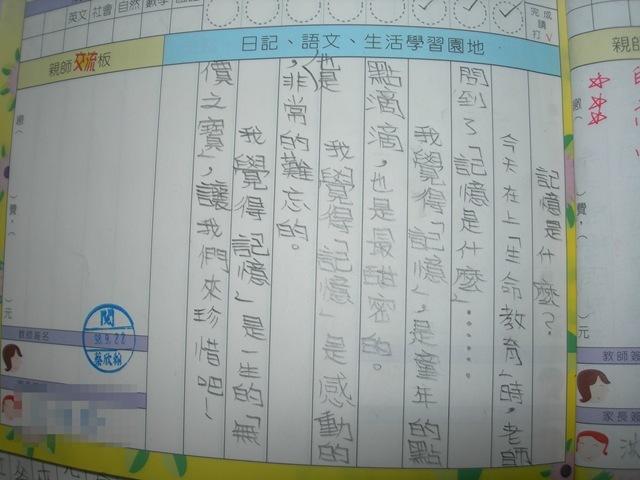 英文 社會 自然 數學
完成請打V
日記、語文、生活學習園地
記憶是什麼？
今天在上「生命教育」時，老師
問到了「記憶是什麼」……
我覺得「記憶」，是童年的點
點滴滴，也是最甜密的。
我覺得「記憶」是感動的
，也是非常的難忘的。
我覺得「記憶」是一生的「無
價之寶」，讓我們來珍惜吧！
親師交流板
繳（
）費，（
）元
教師簽名
閱
98.9.22
蔡欣翰
親師
繳
費，
元
教師簽
家長簽